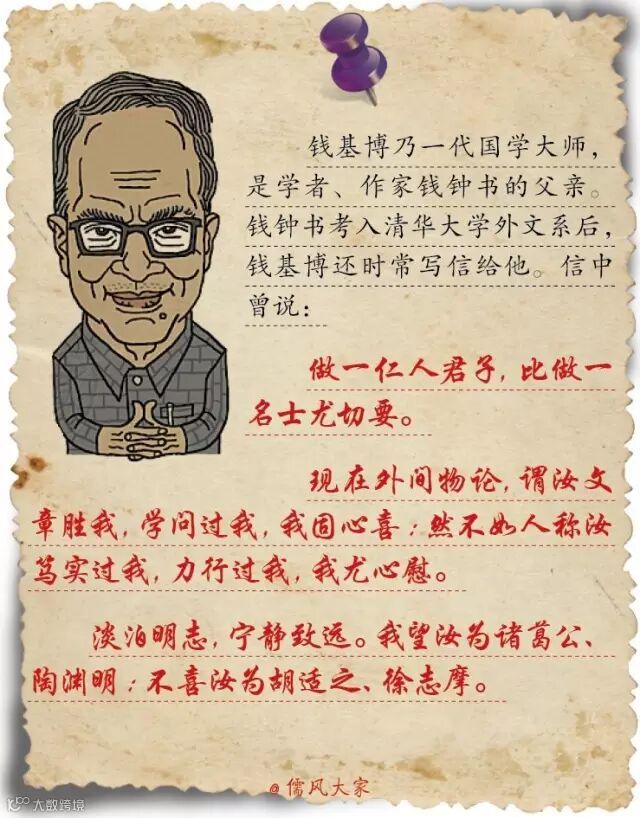 钱基博乃一代国学大师，
是学者、作家钱钟书的父亲。
钱钟书考入清华大学外文系后，
钱基博还时常写信给他。信中
曾说：
做一仁人君子，比做一
名士尤切要。
现在外间物论，谓汝文
章胜我，学问过我，我固心喜；然不如人称汝
笃实过我，力行过我，我尤心慰。
淡泊明志，宁静致远。我望汝为诸葛公、
陶渊明；不喜汝为胡适之、徐志摩。
@儒风大家
大数跨境